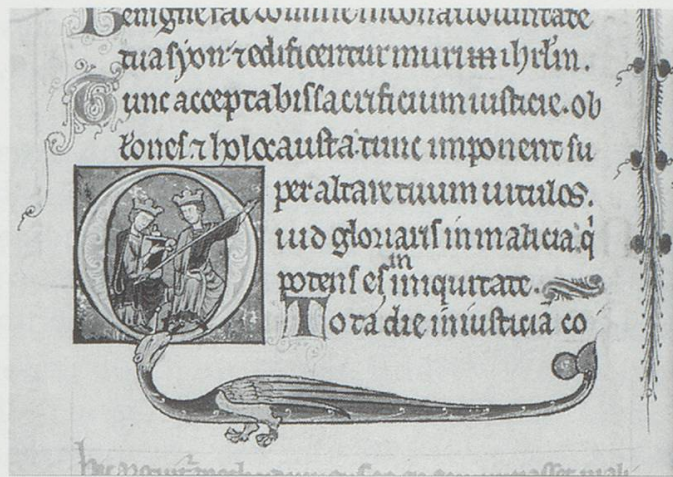 Benigne fac domine in bona uoluntate
tua syon ⁊ edificentur muri ihrlm̄.
Tunc acceptabis sacrificium iusticie. ob
łones ⁊ holocausta. tunc imponent su
per altare tuum uitulos.
Quid gloriaris in malicia qi
potens es in iniquitate.
Tota die iniusticiā co